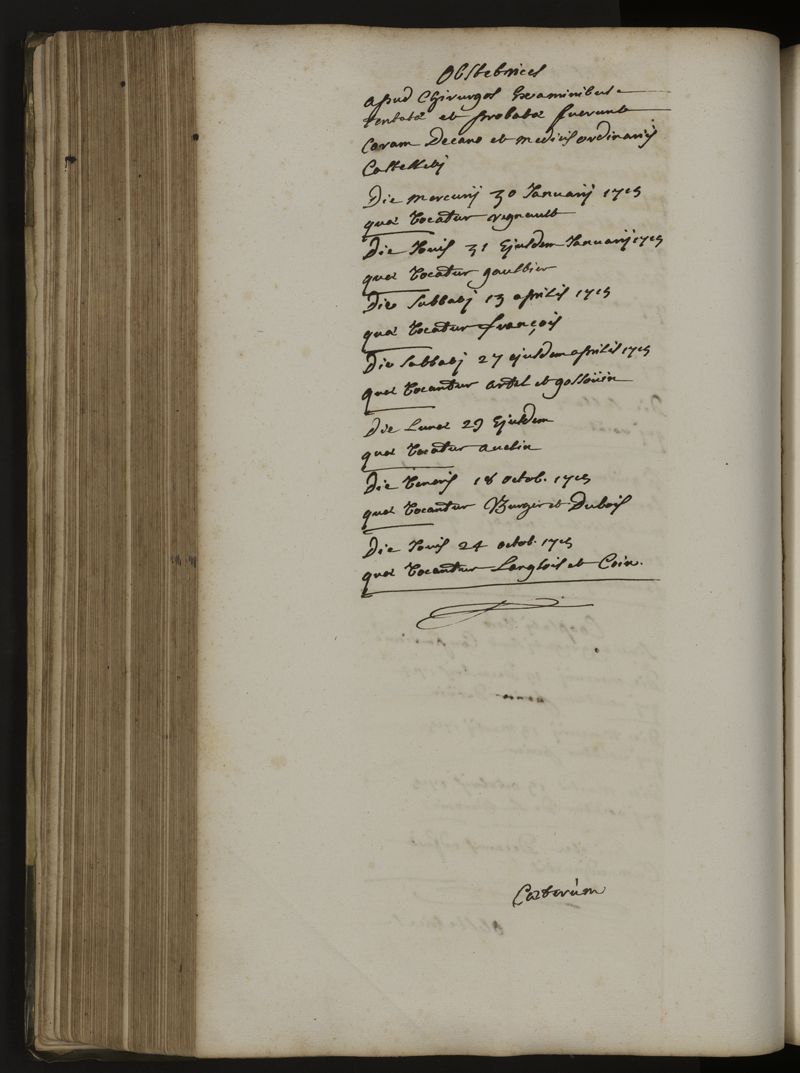 Obstetrices
apud Chirurgos Examinibus
tentatæ et probatæ fuerunt
Coram Decano et medicis ordinariis
Castelleti
Die mercurij 30 Januarij 1715
quæ vocatur regnault
Die Jovis 31 Ejusdem Januarij 1715
quæ vocatur gaultier
Die Sabbatj 13 aprilis 1715
quæ vocatur françois
Die Sabbatj 27 ejusdem aprilis 1715
quæ vocantur artel et gossüin
Die Lunæ 29 Ejusdem
quæ vocatur auclin
Die veneris 18 octob. 1715
quæ vocantur Burgir et Dubois
Die Jovis 24 octob. 1715
quæ vocantur Langlois et Coin.
Cæterùm